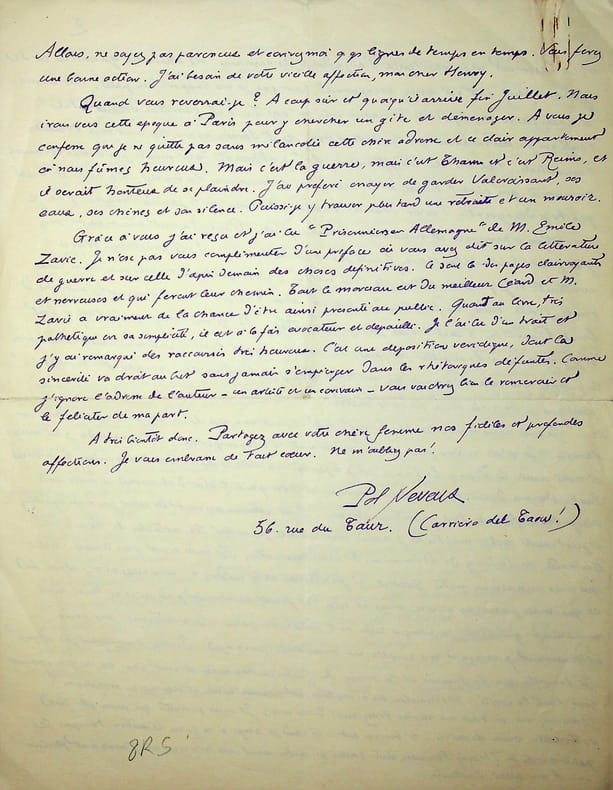 Allons, ne soyez pas paresseux et écrivez moi qqs lignes de temps en temps. Vous ferez
une bonne action. J'ai besoin de votre vieille affection, mon cher Henry.
Quand vous reverrai-je ? A coup sûr et quoiqu'il arrive fin Juillet. Nous
irons vers cette époque à Paris pour y chercher un gîte et déménager. A vous je
confesse que je ne quitte pas sans mélancolie cette chère adresse et ce clair appartement
où nous fûmes heureux. Mais c'est la guerre, mais c'est Thann et c'est Reims, et
il serait honteux de se plaindre. J'ai préféré essayer de garder Valcroissant, ses
eaux, ses chênes et son silence. Puissé-je y trouver plus tard une retraite et un mouroir.
Grâce à vous j'ai reçu et j'ai lu "Prisonniers en Allemagne" de M. Emile
Zavie. Je n'ose pas vous complimenter d'une préface où vous avez dit sur la littérature
de guerre et sur celle d'après demain des choses définitives. Ce sont là des pages clairvoyantes
et nerveuses et qui feront leur chemin. Tout le morceau est du meilleur Céard et M.
Zavie a vraiment de la chance d'être ainsi présenté au public. Quant au livre, très
pathétique en sa simplicité, il est à la fois évocateur et dépouillé. Je l'ai lu d'un trait et
j'y ai remarqué des raccourcis très heureux. C'est une déposition véridique, dont la
sincérité va droit au but sans jamais s'empiéger dans les rhétoriques défuntes. Comme
j'ignore l'adresse de l'auteur - un artiste et un écrivain - vous voudrez bien le remercier et
le féliciter de ma part.
A très bientôt donc. Partagez avec votre chère femme nos fidèles et profondes
affections. Je vous embrasse de tout cœur. Ne m'oubliez pas !
Pol Neveux
56. rue du Taur. (Carriero del Taour !)
8R5